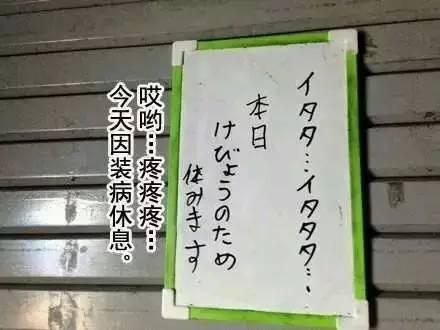 イタタ…イタタタ…
本日
けびょうのため
休みます
哎哟…疼疼疼…
今天因装病休息。